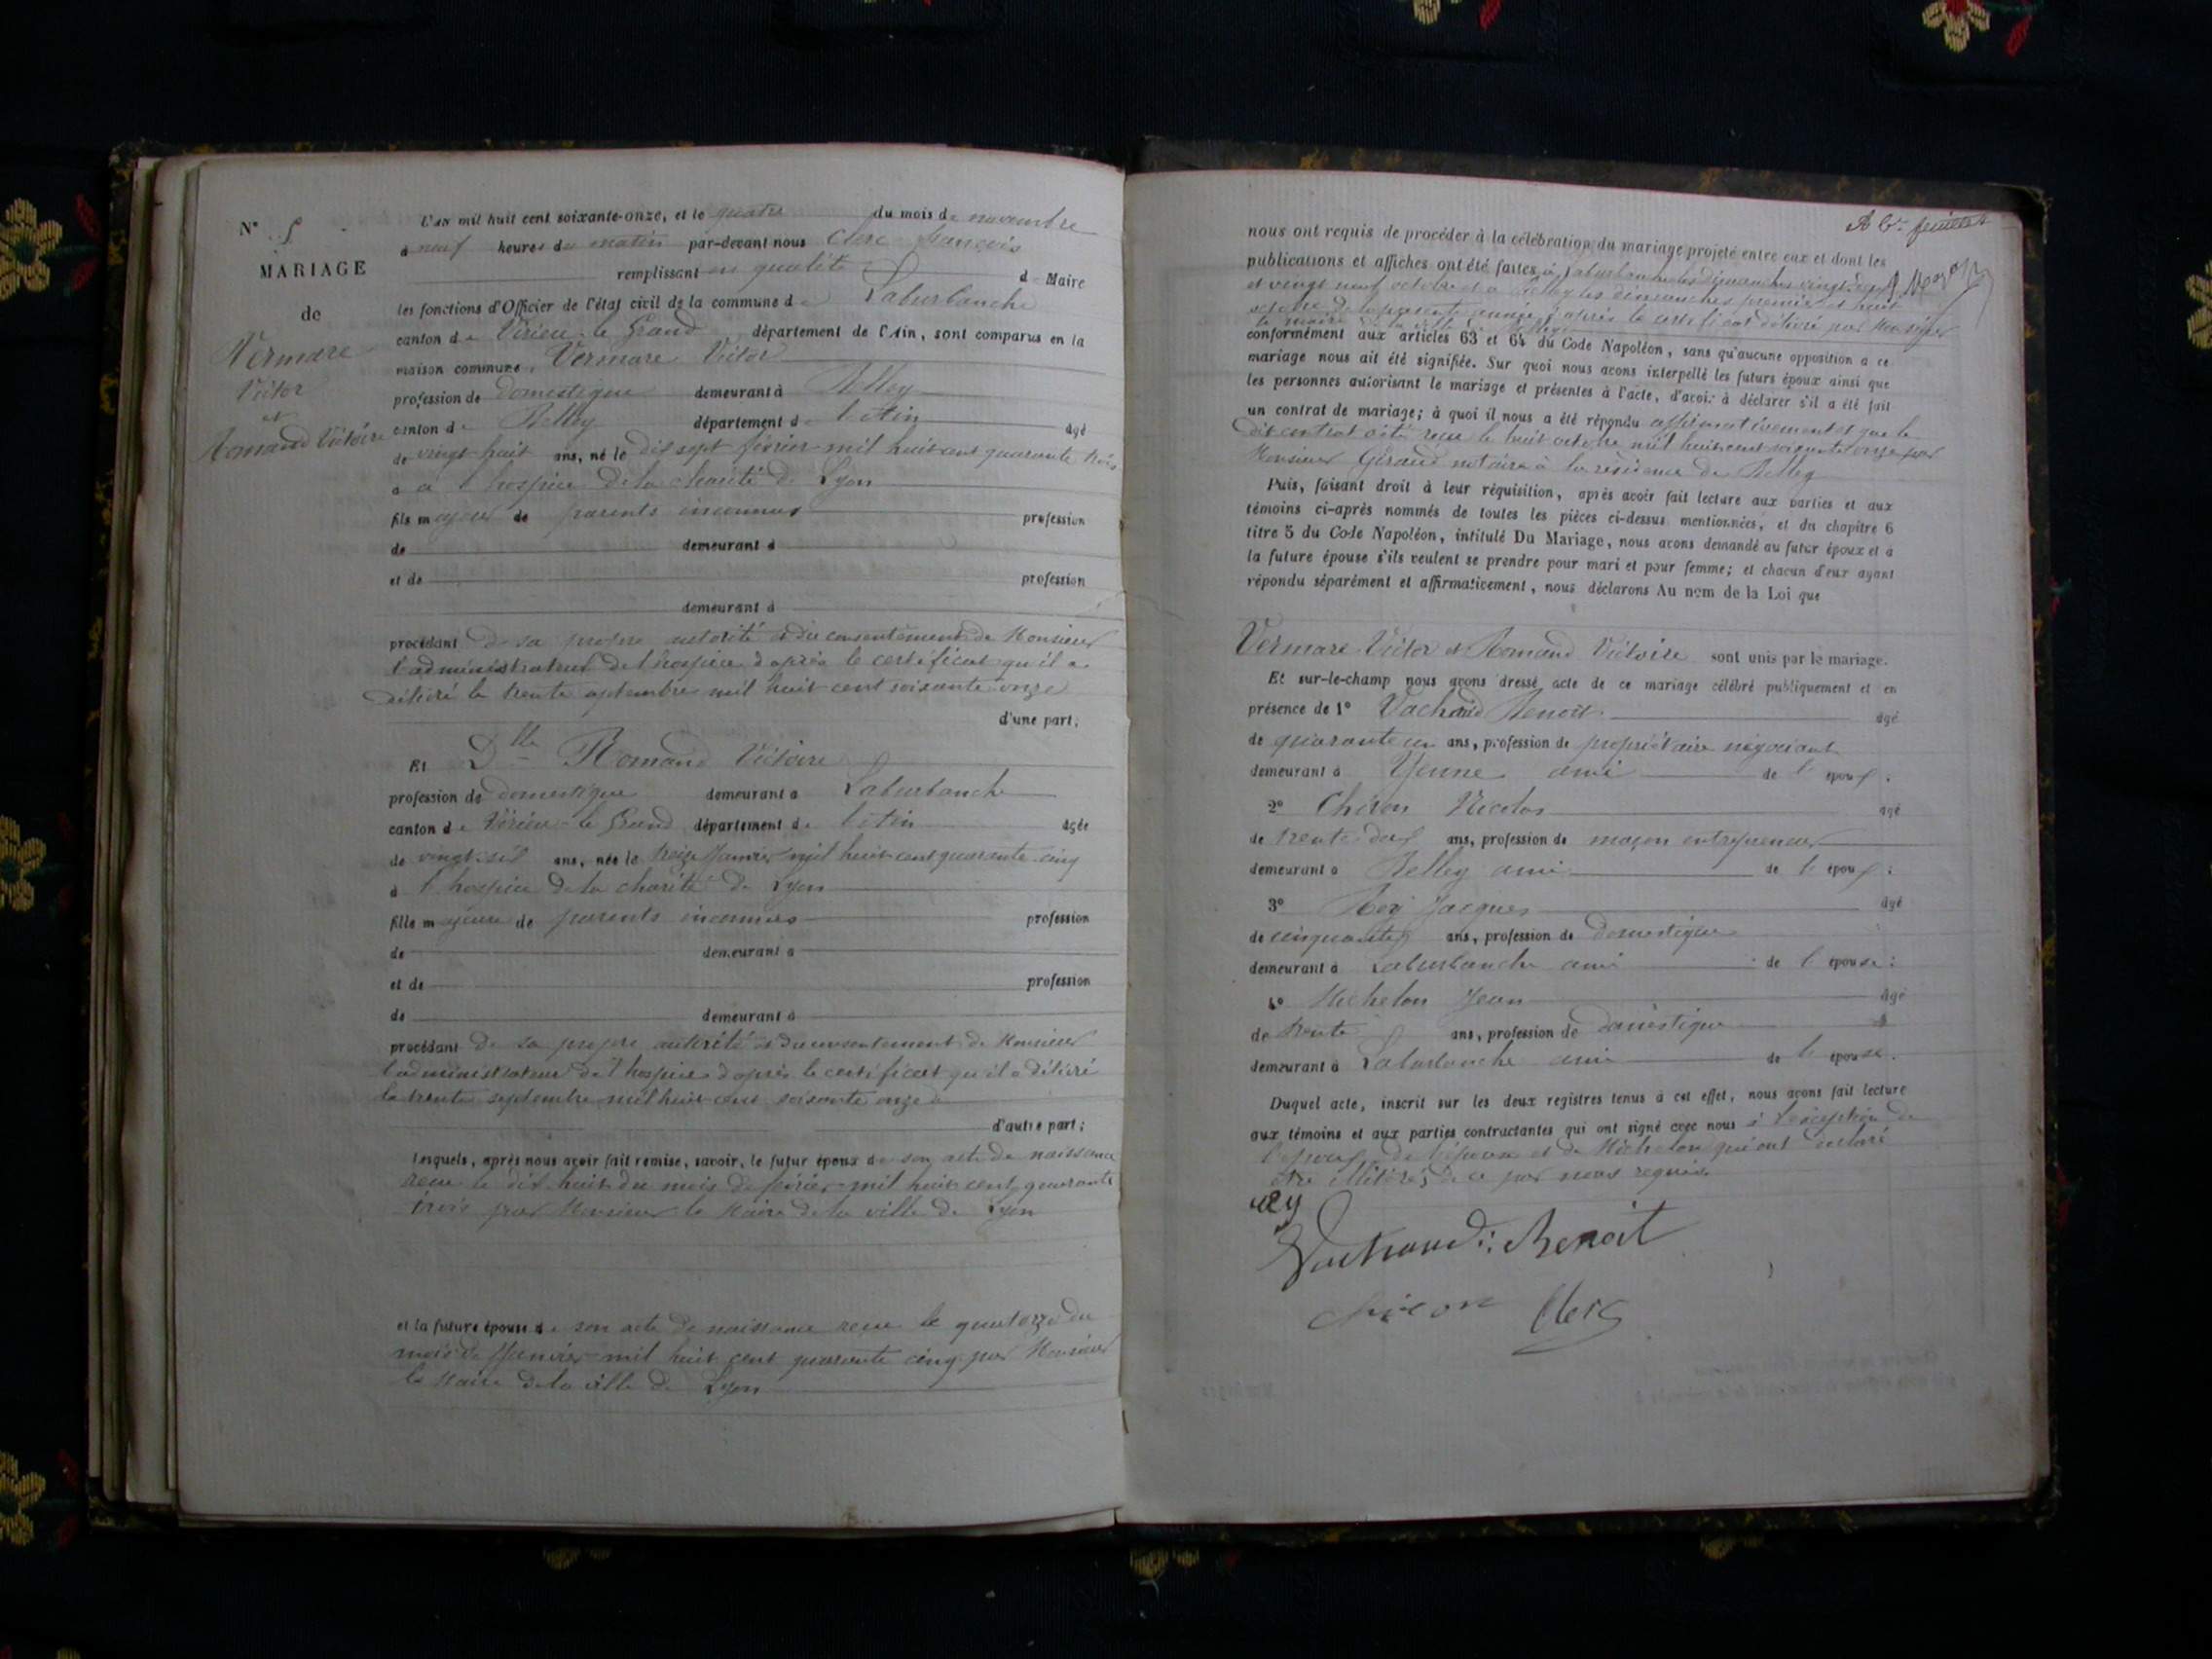 N° 5
MARIAGE
de
Vermare
Victor
et
Romand Victoire
L'an mil huit cent soixante-onze, et le quatre du mois de novembre
à neuf heures du matin par-devant nous Clerc françois
remplissant en qualité de Maire
les fonctions d'Officier de l'état civil de la commune de Laburbanche
canton de Virieu-le Grand département de l'Ain, sont comparus en la
maison commune, Vermare Victor
profession de domestique demeurant à Belley
canton de Belley département de l'Ain agé
de vingt-huit ans, né le dix sept février mil huit cent quarante trois
à a l'hospice de la charité de Lyon
fils majeur de parents inconnus profession
de demeurant à
et de profession
demeurant à
procédant de sa propre autorité et du consentement de Monsieur
l'administrateur de l'hospice d'après le certificat qu'il a
délivré le trente septembre mil huit cent soixante onze
d'une part;
Et Dlle Romand Victoire
profession de domestique demeurant à Laburbanche
canton de Virieu-le Grand département de l'Ain agée
de vingt-six ans, née le treize Janvier mil huit cent quarante cinq
à l'hospice de la charité de Lyon
fille majeure de parents inconnus profession
de demeurant à
et de profession
de demeurant à
procédant de sa propre autorité et du consentement de Monsieur
l'administrateur de l'hospice d'après le certificat qu'il a délivré
le trente septembre mil huit cent soixante onze
d'autre part;
lesquels, après nous avoir fait remise, savoir, le futur époux de son acte de naissance
reçu le dix-huit du mois de février mil huit cent quarante
trois par Monsieur le Maire de la ville de Lyon
et la future épouse de son acte de naissance reçu le quatorze du
mois de Janvier mil huit cent quarante cinq par Monsieur
le Maire de la ville de Lyon
nous ont requis de procéder à la célébration du mariage projeté entre eux et dont les
publications et affiches ont été faites à Laburbanche les dimanches vingt deux
et vingt neuf octobre et à Belley les dimanches premier et huit
octobre de la présente année, d'après le certificat délivré par Monsieur
le maire de la ville de Belley
conformément aux articles 63 et 64 du Code Napoléon, sans qu'aucune opposition à ce
mariage nous ait été signifiée. Sur quoi nous avons interpellé les futurs époux ainsi que
les personnes autorisant le mariage et présentes à l'acte, d'avoir à déclarer s'il a été fait
un contrat de mariage; à quoi il nous a été répondu affirmativement et que le
dit contrat a été reçu le huit octobre mil huit cent soixante onze par
Monsieur Géraud notaire à la résidence de Belley
Puis, faisant droit à leur réquisition, après avoir fait lecture aux parties et aux
témoins ci-après nommés de toutes les pièces ci-dessus mentionnées, et du chapitre 6
titre 5 du Code Napoléon, intitulé Du Mariage, nous avons demandé au futur époux et à
la future épouse s'ils veulent se prendre pour mari et pour femme; et chacun d'eux ayant
répondu séparément et affirmativement, nous déclarons Au nom de la Loi que
Vermare Victor et Romand Victoire sont unis par le mariage.
Et sur-le-champ nous avons dressé acte de ce mariage célébré publiquement et en
présence de 1° Vachaud Benoit agé
de quarante un ans, profession de propriétaire négociant
demeurant à Yenne ami de l'époux;
2° Chiron Nicolas agé
de trente deux ans, profession de maçon entrepreneur
demeurant à Belley ami de l'époux;
3° Rey Jacques agé
de cinquante ans, profession de domestique
demeurant à Laburbanche ami de l'épouse;
4° Michelon Jean agé
de trente ans, profession de domestique
demeurant à Laburbanche ami de l'épouse.
Duquel acte, inscrit sur les deux registres tenus à cet effet, nous avons fait lecture
aux témoins et aux parties contractantes qui ont signé avec nous à l'exception de
l'époux de l'épouse et de Michelon qui ont déclaré
être illitérés de ce par nous requis.
Rey
Vachaud: Benoit
Chiron Clerc